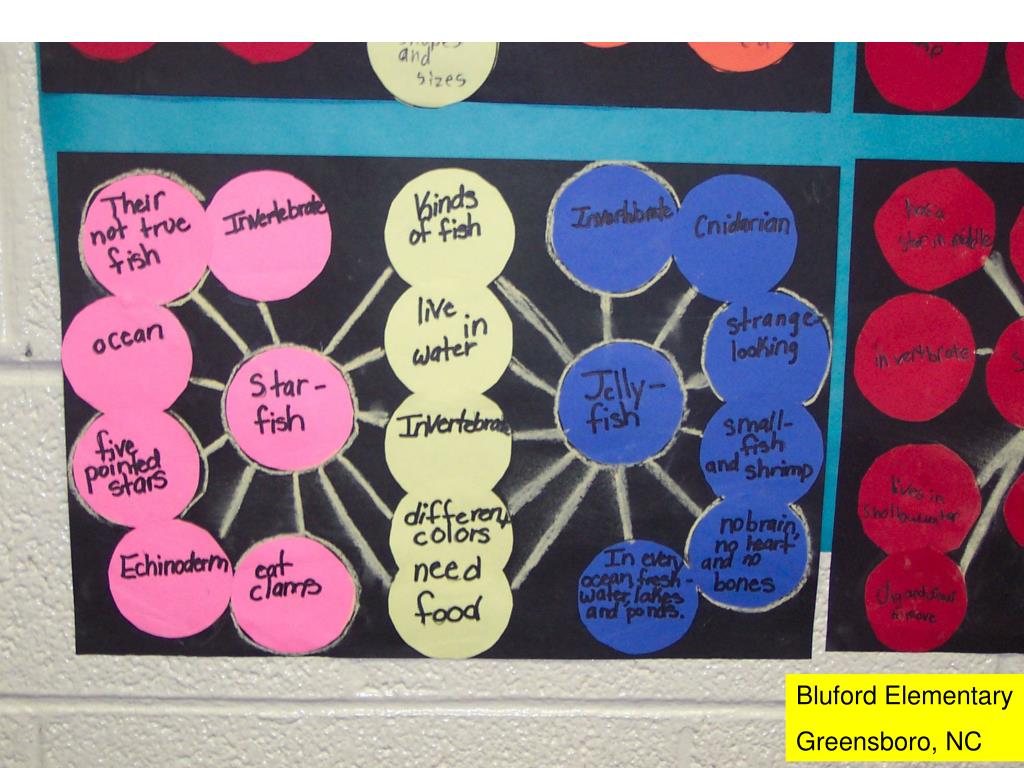 and
sizes
Their
not true
fish
Invertebrate
ocean
five
pointed
stars
Echinoderm
eat
clams
Star-
fish
Kinds
of fish
live
in
water
Invertebrate
different
colors
need
food
Jelly-
fish
Invertibrate
Cnidarian
strange
looking
small-
fish
and shrimp
no brain,
no heart
and no
bones
In every
ocean, fresh-
water, lakes
and ponds.
has a
star in middle
invertbrate
lives in
to move
Bluford Elementary
Greensboro, NC